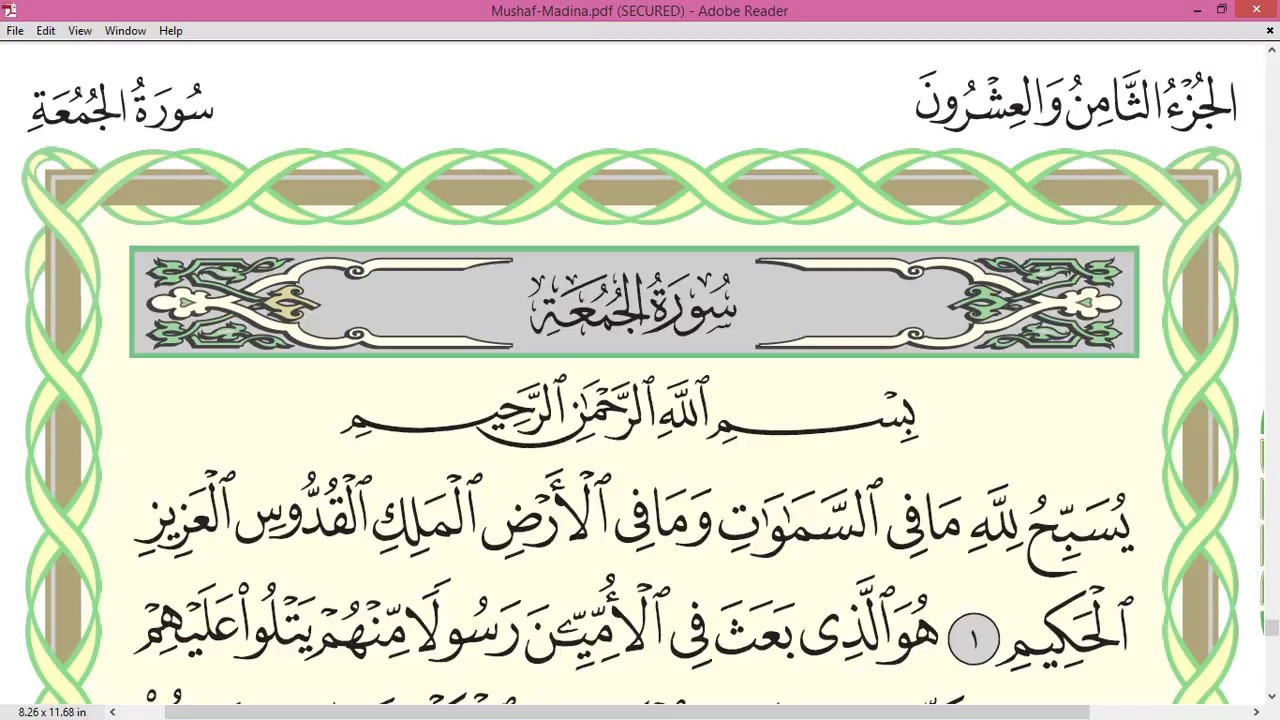 Mushaf-Madina.pdf (SECURED) - Adobe Reader
File Edit View Window Help
الجُزْءُ الثَّامِنُ وَالعِشْرُونَ
سُورَةُ الجُمُعَةِ
سُورَةُ الجُمُعَةِ
بِسْمِ ٱللَّهِ ٱلرَّحْمَٰنِ ٱلرَّحِيمِ
يُسَبِّحُ لِلَّهِ مَا فِى ٱلسَّمَٰوَٰتِ وَمَا فِى ٱلْأَرْضِ ٱلْمَلِكِ ٱلْقُدُّوسِ ٱلْعَزِيزِ
ٱلْحَكِيمِ ١ هُوَ ٱلَّذِى بَعَثَ فِى ٱلْأُمِّيِّـۧنَ رَسُولًا مِّنْهُمْ يَتْلُوا۟ عَلَيْهِمْ
8.26 x 11.68 in